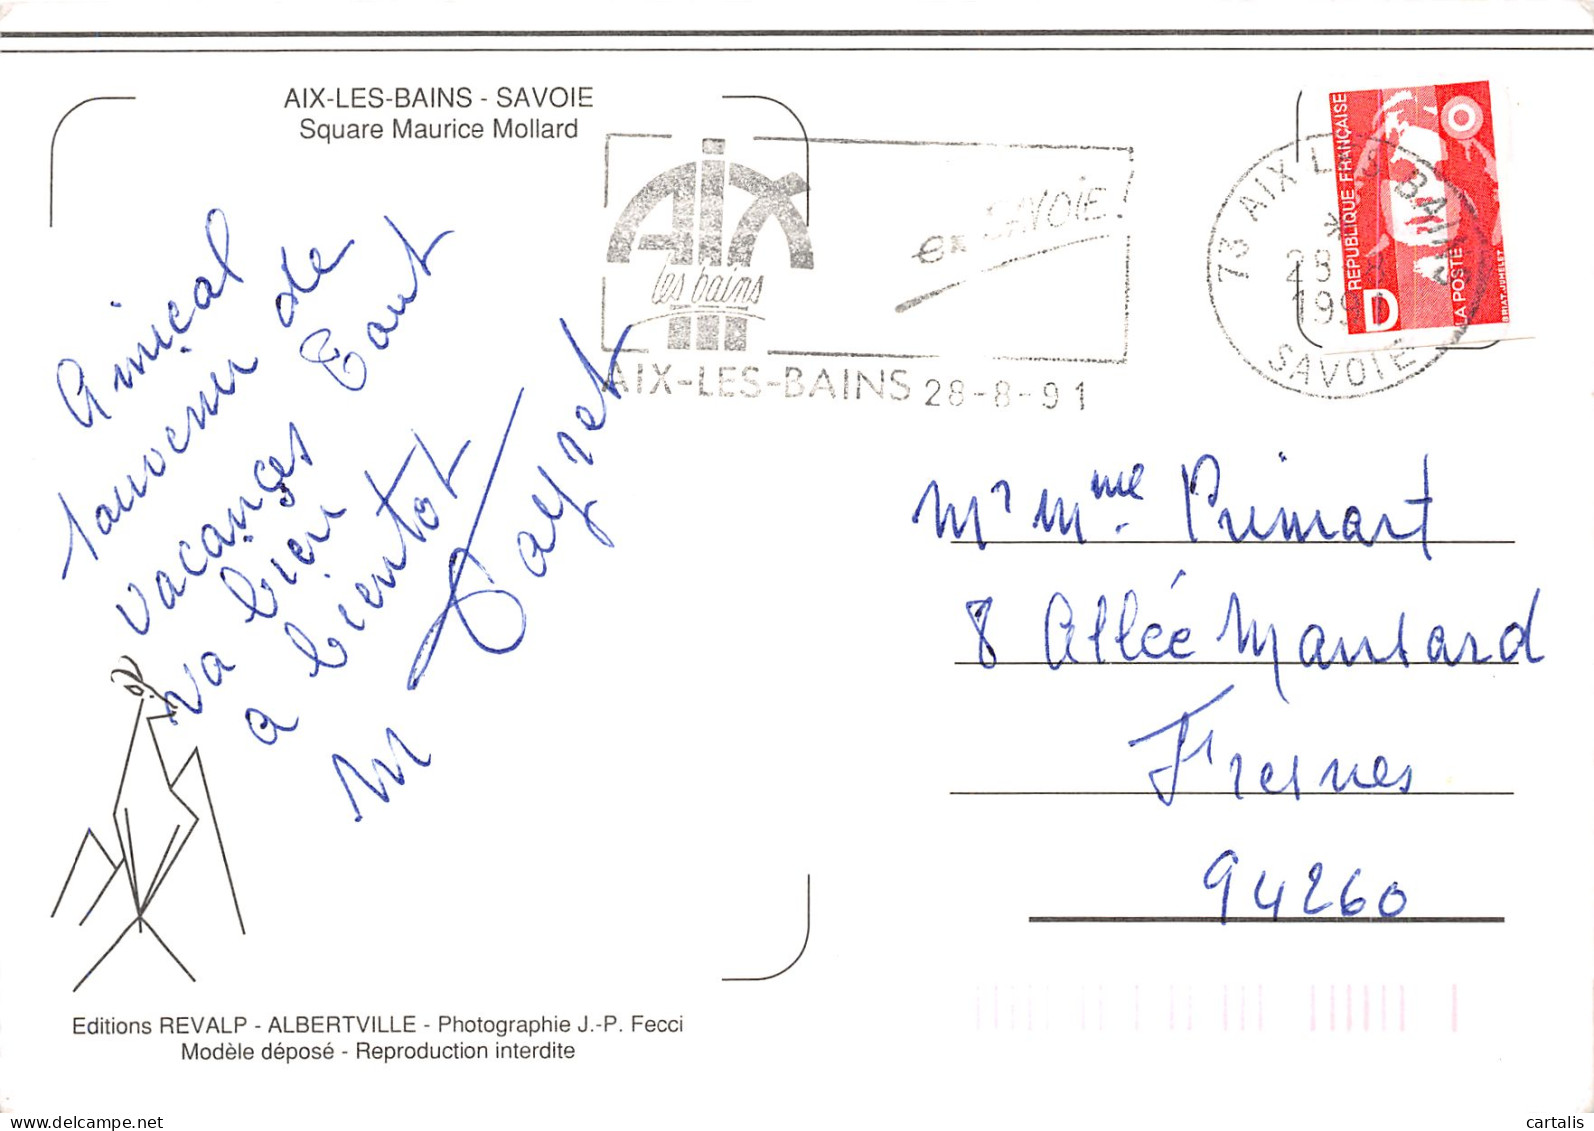 AIX-LES-BAINS - SAVOIE
Square Maurice Mollard
Amical
souvenir de
vacances Tout
va bien
a bientot
M
AIX
les bains
en SAVOIE!
AIX-LES-BAINS 28-8-91
73 AIX LES BAINS
28
1991
SAVOIE
REPUBLIQUE FRANÇAISE
D
LA POSTE
BRIAT.JUMELET
Mr Mme Primart
8 Allée Mansard
Fresnes
94260
Editions REVALP - ALBERTVILLE - Photographie J.-P. Fecci
Modèle déposé - Reproduction interdite
cartalis
www.delcampe.net